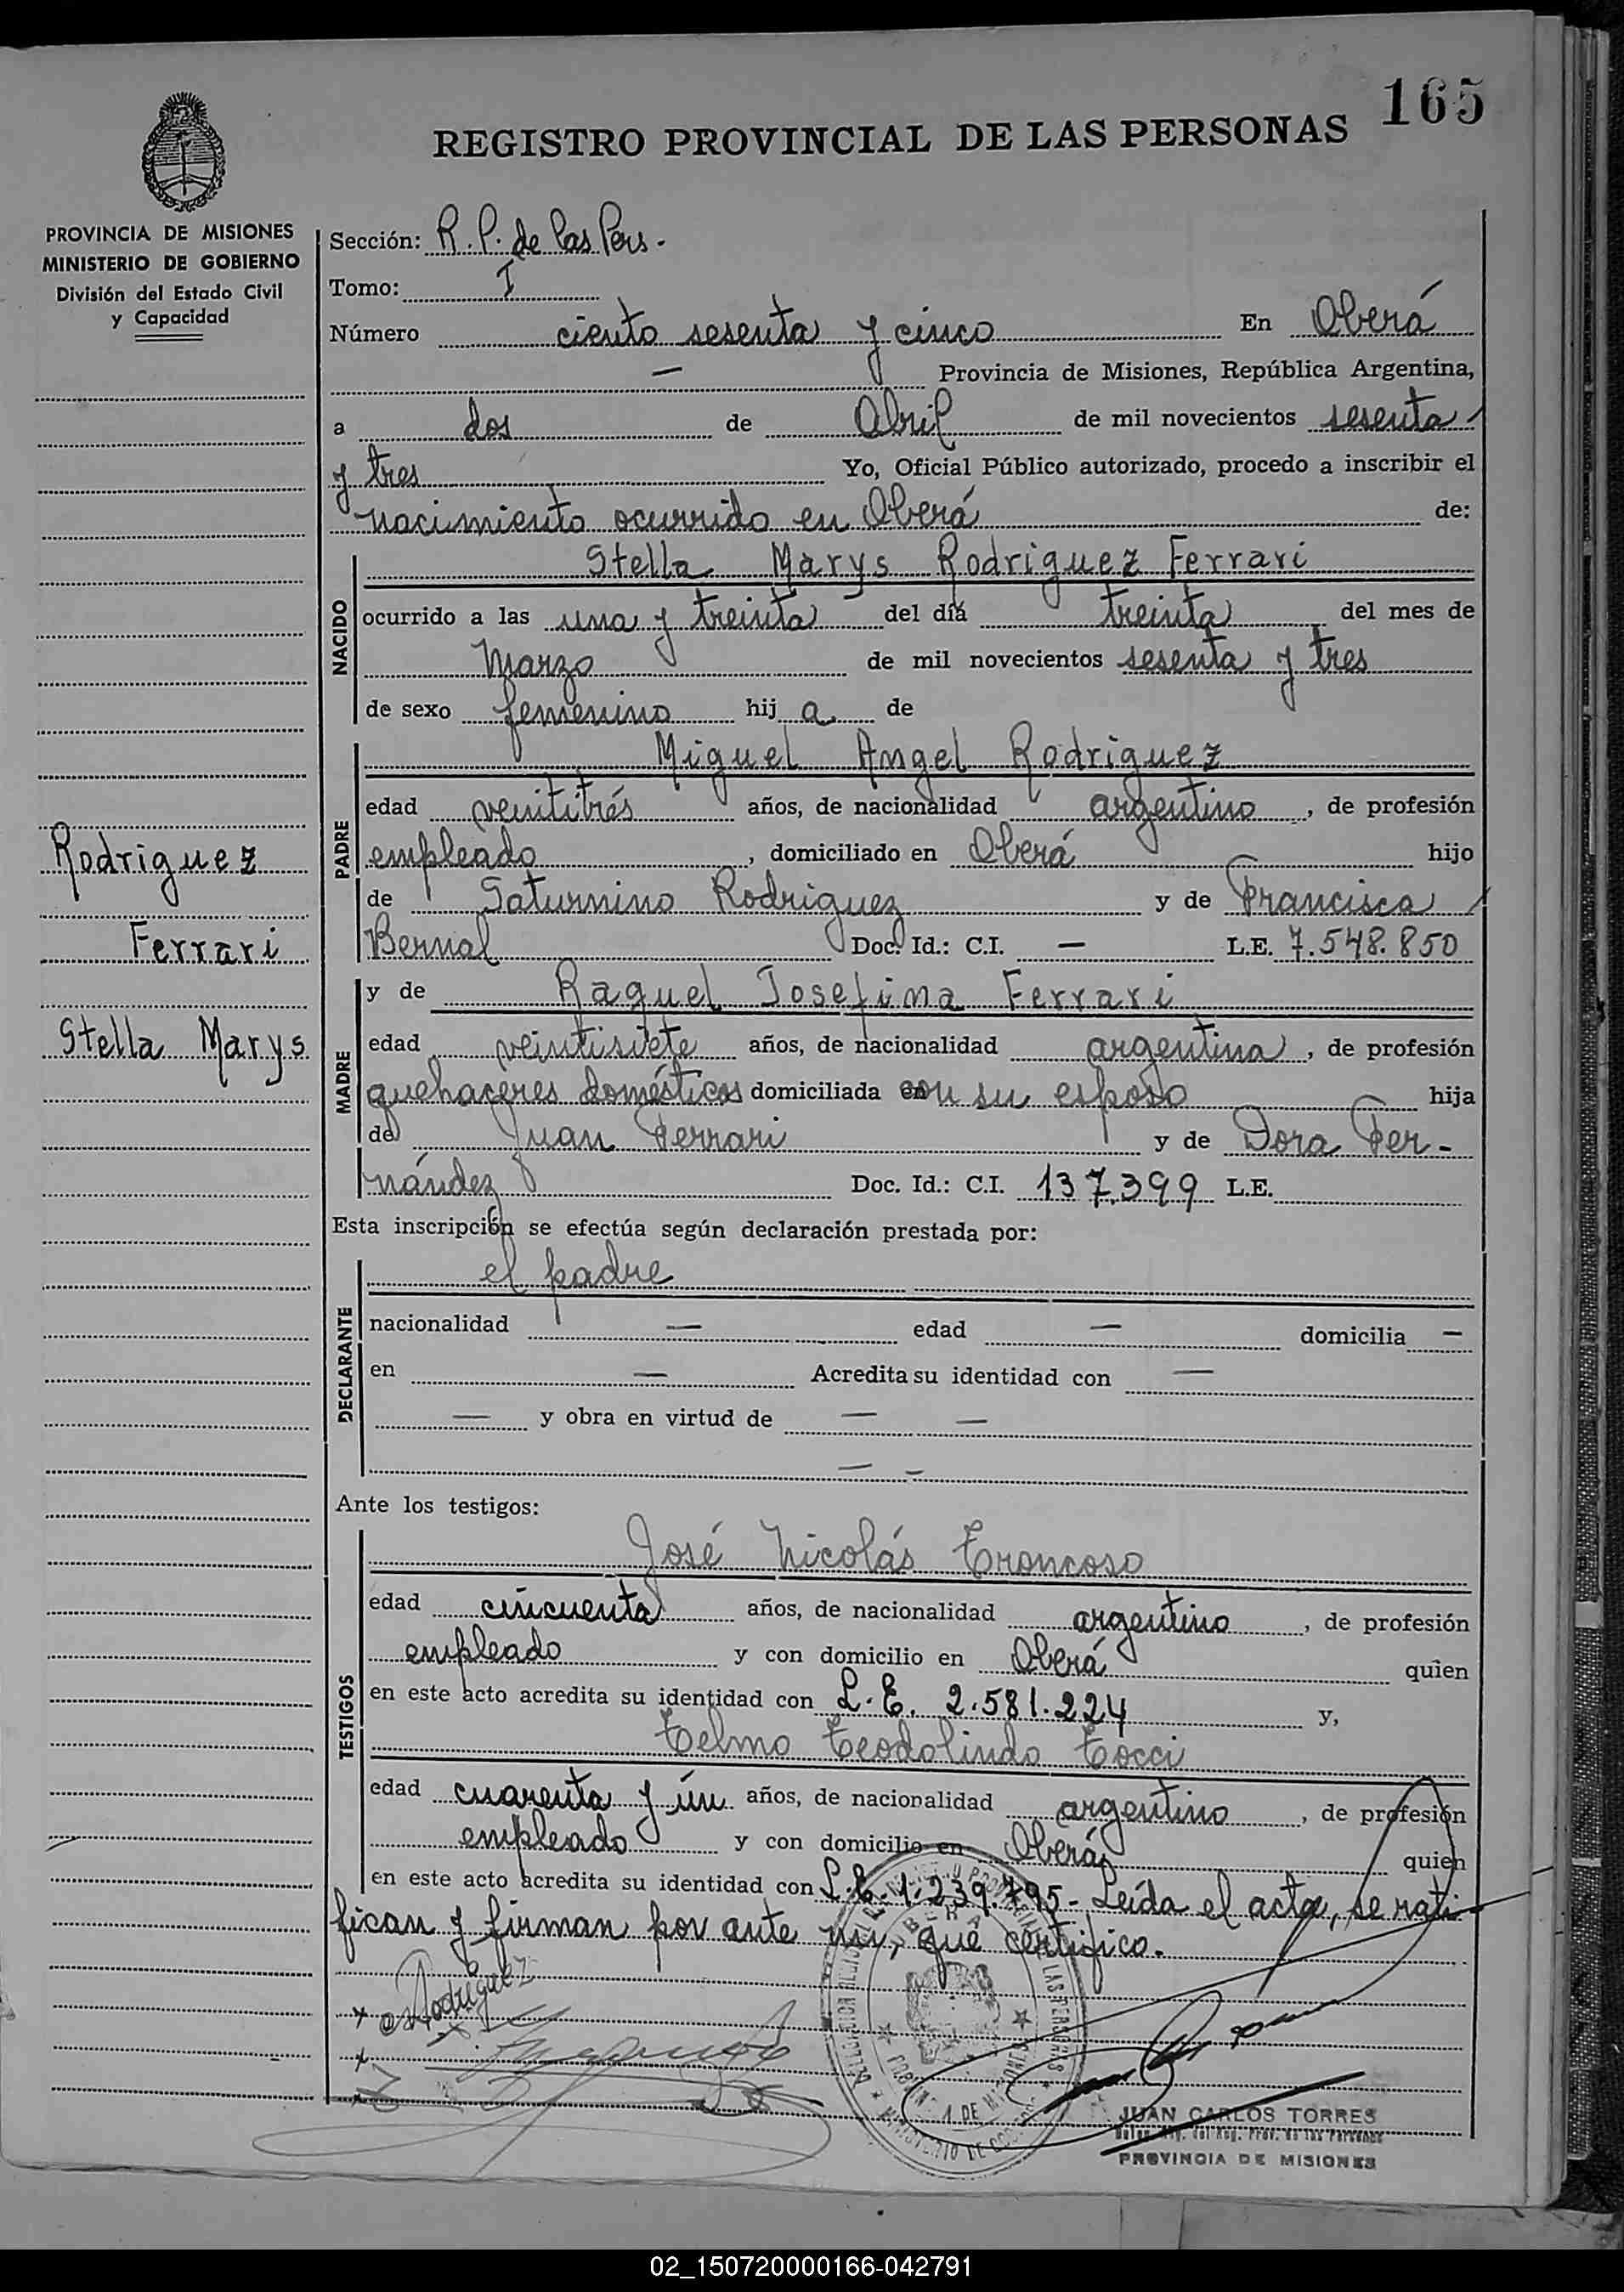 165
REGISTRO PROVINCIAL DE LAS PERSONAS
PROVINCIA DE MISIONES
MINISTERIO DE GOBIERNO
División del Estado Civil
y Capacidad
Rodriguez
Ferrari
Stella Marys
Sección: R. P. de las Pers.
Tomo: I
Número ciento sesenta y cinco En Oberá
— Provincia de Misiones, República Argentina,
a dos de Abril de mil novecientos sesenta
y tres Yo, Oficial Público autorizado, procedo a inscribir el
nacimiento ocurrido en Oberá de:
NACIDO
Stella Marys Rodriguez Ferrari
ocurrido a las una y treinta del día treinta del mes de
Marzo de mil novecientos sesenta y tres
de sexo femenino hij a de
PADRE
Miguel Angel Rodriguez
edad veintitrés años, de nacionalidad argentino, de profesión
empleado, domiciliado en Oberá hijo
de Saturnino Rodriguez y de Francisca
Bernal Doc. Id.: C.I. — L.E. 7.548.850
MADRE
y de Raquel Josefina Ferrari
edad veintisiete años, de nacionalidad argentina, de profesión
quehaceres domésticos domiciliada con su esposo hija
de Juan Ferrari y de Dora Fer-
nández Doc. Id.: C.I. 137.399 L.E.
Esta inscripción se efectúa según declaración prestada por:
DECLARANTE
el padre
nacionalidad — edad — domicilia —
en — Acredita su identidad con —
— y obra en virtud de — —
— —
Ante los testigos:
TESTIGOS
José Nicolás Troncoso
edad cincuenta años, de nacionalidad argentino, de profesión
empleado y con domicilio en Oberá quien
en este acto acredita su identidad con L.E. 2.581.224 y,
Telmo Teodolindo Tocci
edad cuarenta y ún años, de nacionalidad argentino, de profesión
empleado y con domicilio en Oberá quien
en este acto acredita su identidad con L.E. 1.239.795- Leída el acta, se rati
fican y firman por ante mí, que certifico.
x Rodriguez
x
JUAN CARLOS TORRES
PROVINCIA DE MISIONES
02_150720000166-042791